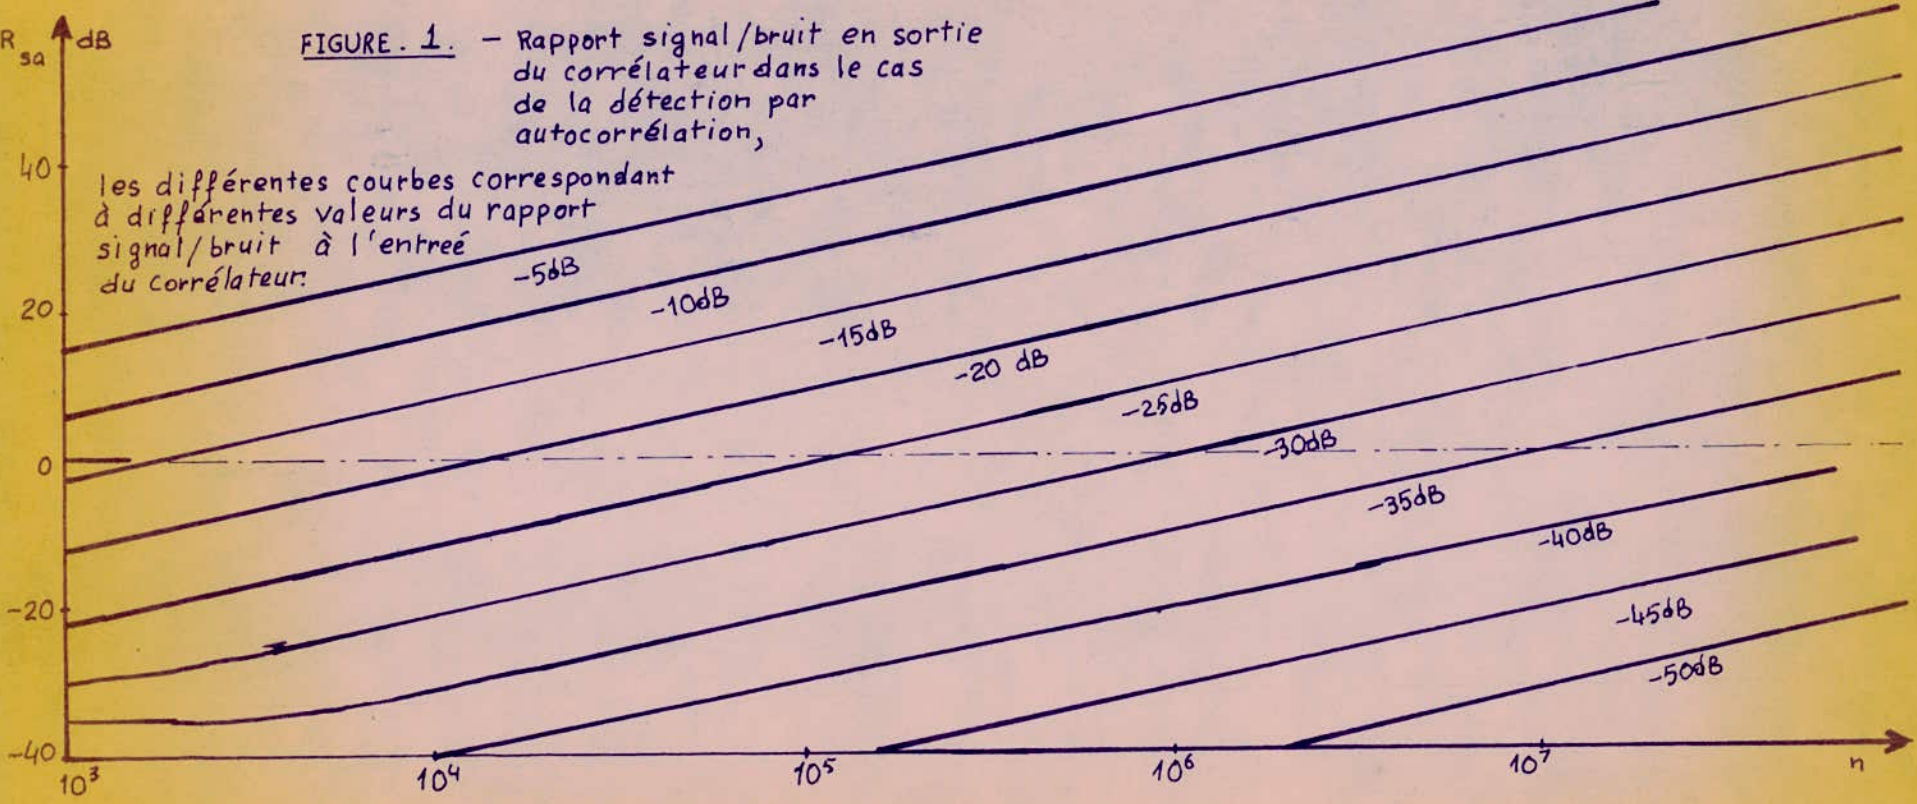 R sa dB
FIGURE. 1. — Rapport signal/bruit en sortie
du corrélateur dans le cas
de la détection par
autocorrélation,
les différentes courbes correspondant
à différentes valeurs du rapport
signal/bruit à l'entreé
du corrélateur.
40
20
0
-20
-40
-5dB
-10dB
-15dB
-20 dB
-25dB
-30dB
-35dB
-40dB
-45dB
-50dB
10³ 10⁴ 10⁵ 10⁶ 10⁷ n